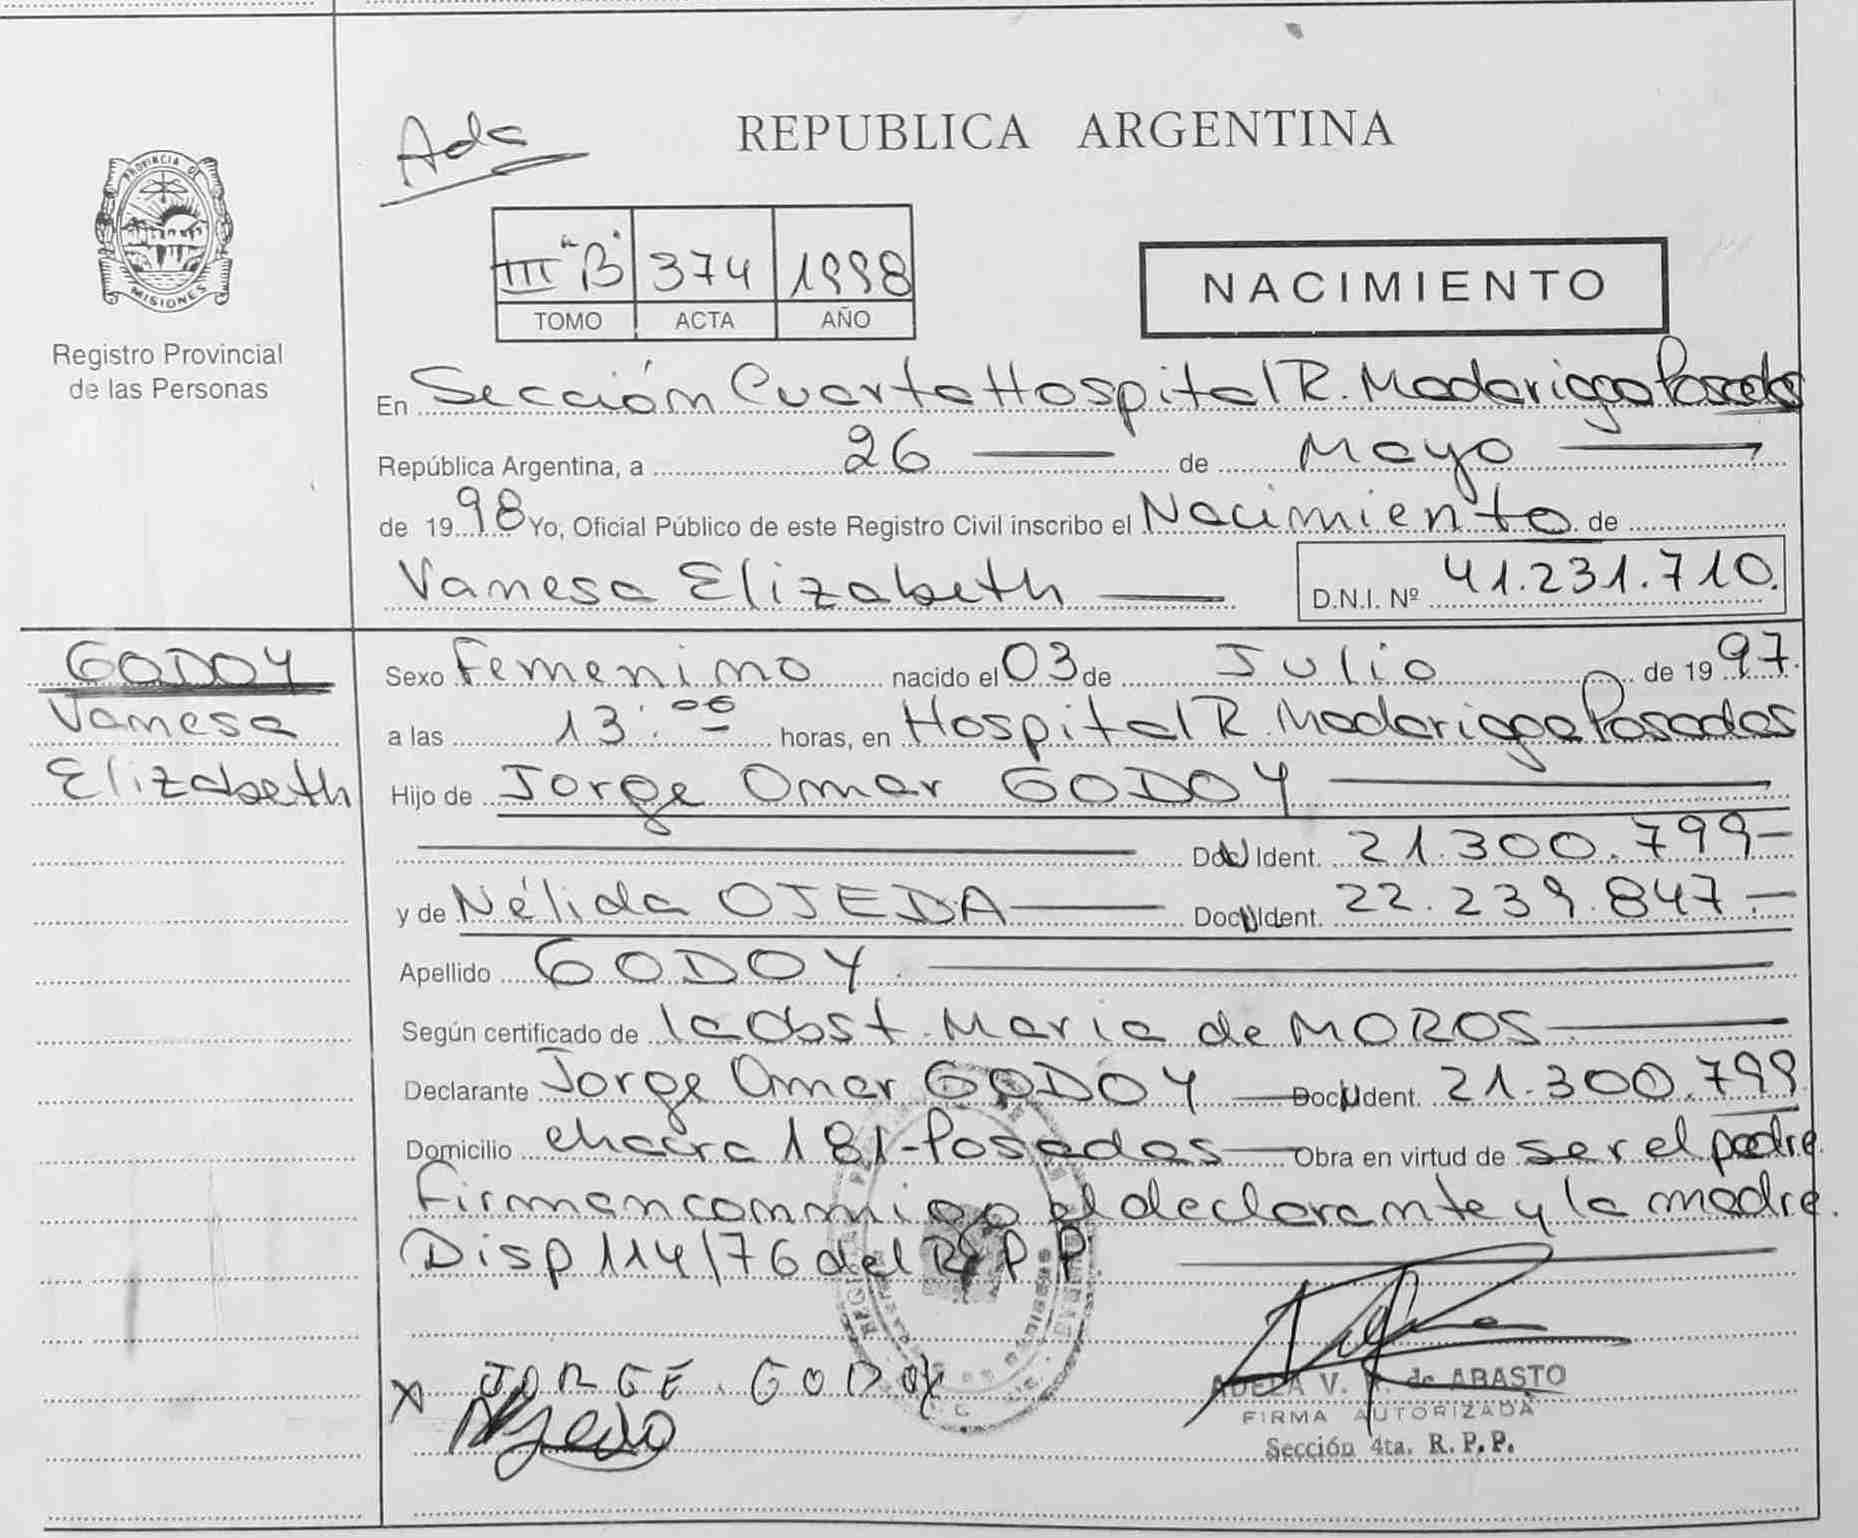 PROVINCIA DE
MISIONES
Registro Provincial
de las Personas
GODOY
Vanesa
Elizabeth
Ada
REPUBLICA ARGENTINA
III "B" 374 1998
TOMO ACTA AÑO
NACIMIENTO
En Sección Cuarta Hospital R. Madariaga Posadas
República Argentina, a 26 de Mayo
de 1998 Yo, Oficial Público de este Registro Civil inscribo el Nacimiento de
Vanesa Elizabeth D.N.I. Nº 41.231.710.
Sexo Femenino nacido el 03 de Julio de 1997.
a las 13:00 horas, en Hospital R. Madariaga Posadas
Hijo de Jorge Omar GODOY
Ident. 21.300.799-
y de Nélida OJEDA Ident. 22.239.847.-
Apellido GODOY.
Según certificado de la Obst. Maria de MOROS
Declarante Jorge Omar GODOY Ident. 21.300.799
Domicilio chacra 181-Posadas Obra en virtud de ser el padre.
Firman conmigo el declarante y la madre.
Disp 114/76 del R P P
X JORGE. GODOY
ADELA V. de ABASTO
FIRMA AUTORIZADA
Sección 4ta. R. P. P.